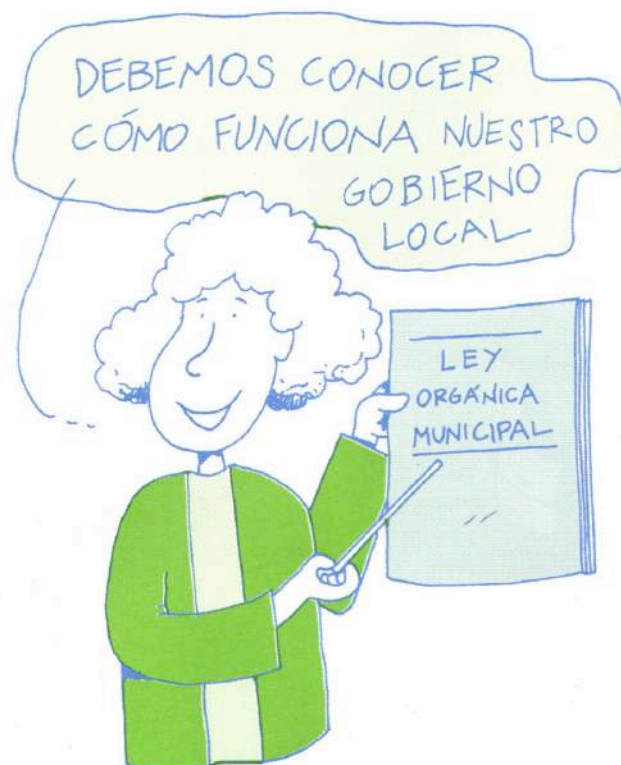 DEBEMOS CONOCER
CÓMO FUNCIONA NUESTRO
GOBIERNO
LOCAL
LEY
ORGÁNICA
MUNICIPAL